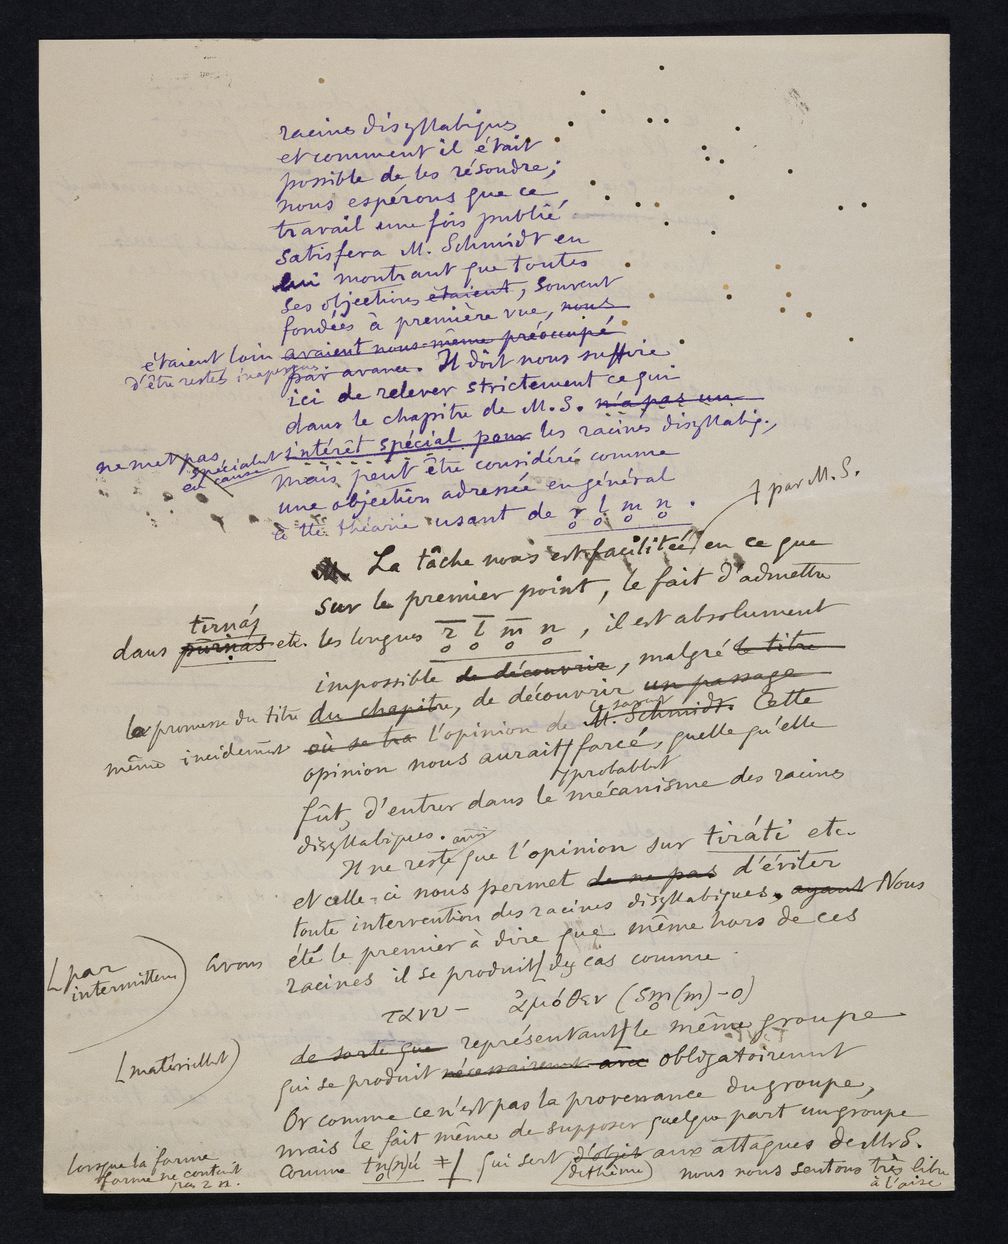 racines disyllabiques
et comment il était
possible de les résoudre ;
nous espérons que ce
travail une fois publié
satisfera M. Schmidt en
lui montrant que toutes
ses objections étaient, souvent
fondées à première vue, nous
étaient loin avaient nous-même préoccupé
d'être restés inaperçus par avance. Il doit nous suffire
ici de relever strictement ce qui
dans le chapitre de M. S. n'a pas un
ne met pas spécialnt en cause intérêt spécial pour les racines disyllabiq.,
mais peut être considéré comme
une objection adressée en général
à tte théorie usant de r̥ l̥ m̥ n̥ .
par M. S.
La tâche nous est facilitée en ce que
sur le premier point, le fait d'admettre
tīrṇás
dans pūrṇás etc. les longues r̥̄ l̥̄ m̥̄ n̥̄ , il est absolument
impossible de découvrir, malgré le titre
la promesse du titre du chapitre, de découvrir un passage
même incidemmt où se tra l'opinion de M. Schmidt. Cette
opinion nous aurait forcé, quelle qu'elle
probablt
fût, d'entrer dans le mécanisme des racines
disyllabiques.
Il ne reste ainsi que l'opinion sur tiráti etc.
et celle-ci nous permet de ne pas d'éviter
toute intervention des racines disyllabiques. ayant Nous
avons été le premier à dire que même hors de ces
[par intermittence) racines il se produit [ des cas comme
τανυ – ἁμόθεν (sm̥(m)-o)
de sorte que représentant [ le même groupe
[matériellt) qui se produit nécessairement avec obligatoirement
Or comme ce n'est pas la provenance du groupe,
mais le fait même de supposer quelque part un groupe
comme tn̥(n)ú ≠ [ qui sert d'objet aux attaques de Mr S.
(de thème) nous nous sentons très libre
à l'aise
lorsque la forme
forme ne contient
pas 2 n.